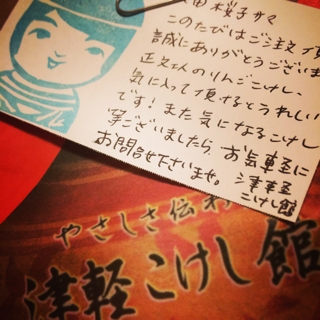 田 桜子サマ
このたびはご注文頂
誠にありがとうございま
正文さんのりんごこけし、
気に入って頂けるとうれしい
です!また気になるこけし
等ございましたら、お気軽に
お問合せ下さいませ。津軽
こけし館
やさしさ伝わ
津軽こけし館